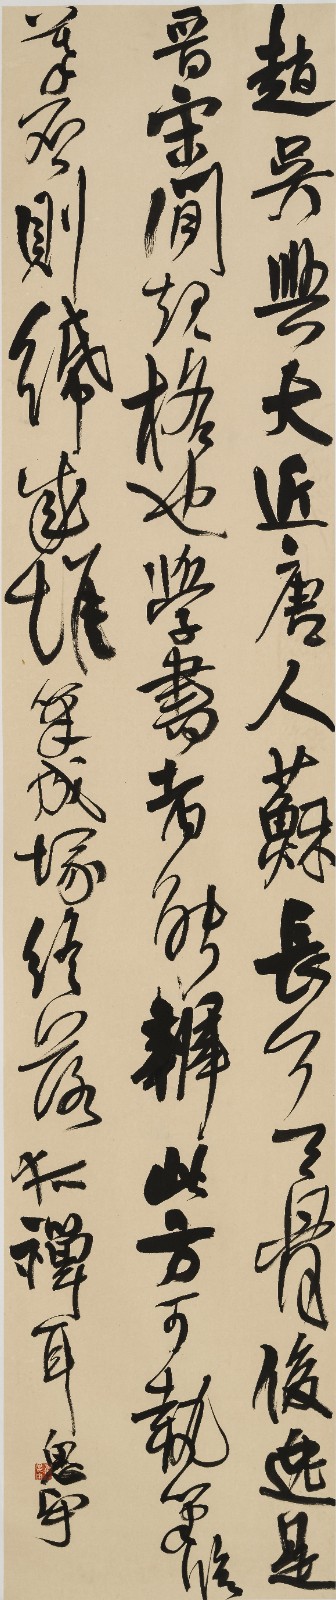 趙吳興大近唐人蘇長公天骨俊逸是
晉宋間規格也學書者能辨此方可執筆臨
摹否則紙成堆筆成塚終落狐禪耳